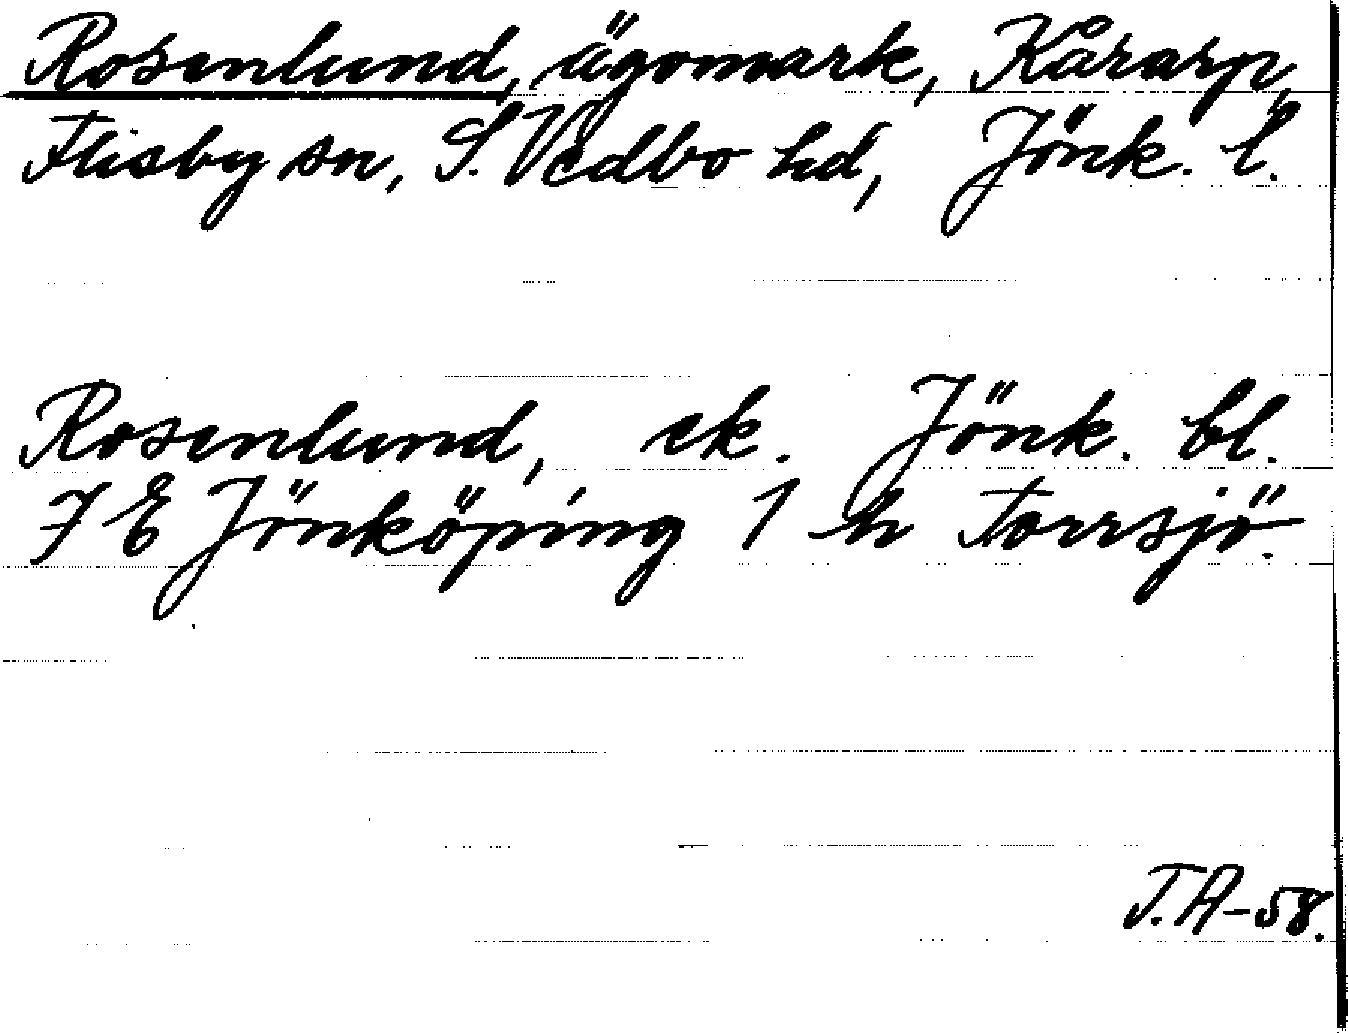 Rosenlund, ägomark, Kårarp,
Flisby sn, S. Vedbo hd, Jönk. l.
Rosenlund, ek. Jönk. bl.
7 E Jönköping 1 h Torrsjö.
T.A-58.